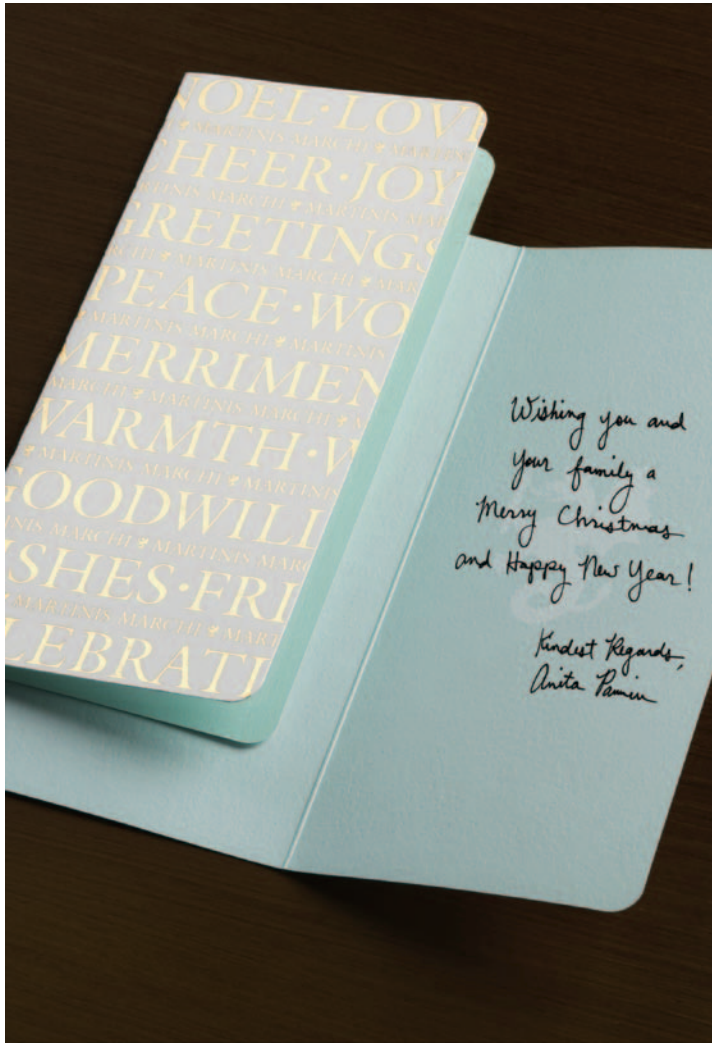 NOEL·LOVE
MARTINIS MARCHI MARCHI
CHEER·JOY
MARTINIS MARCHI MARTINIS MAR
GREETINGS
RCHI MARTINIS MARCHI MAR
PEACE·WO
MARTINIS MARCHI MARTINIS
MERRIMEN
MARCHI MARTINIS MARCHI M
WARMTH·W
MARTINIS MARCHI MARTINIS
GOODWILL
INIS MARCHI MARTINIS MARC
SHES·FRI
MARTINIS MARCHI MART
LEBRATI
Wishing you and
your family a
Merry Christmas
and Happy New Year!
Kindest Regards,
Anita